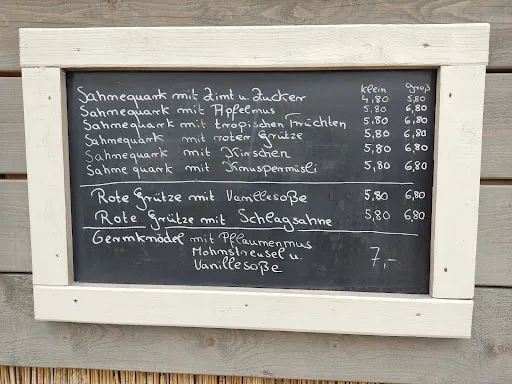 klein groß
Sahmequark mit Zimt u. Zucker 4,80 5,80
Sahmequark mit Apfelmus 5,80 6,80
Sahmequark mit tropischen Früchten 5,80 6,80
Sahmequark mit roter Grütze 5,80 6,80
Sahmequark mit Kirschen 5,80 6,80
Sahmequark mit Knuspermüsli 5,80 6,80
Rote Grütze mit Vanillesoße 5,80 6,80
Rote Grütze mit Schlagsahne 5,80 6,80
Germknödel mit Pflaumenmus
Mohnstreusel u. 7,-
Vanillesoße